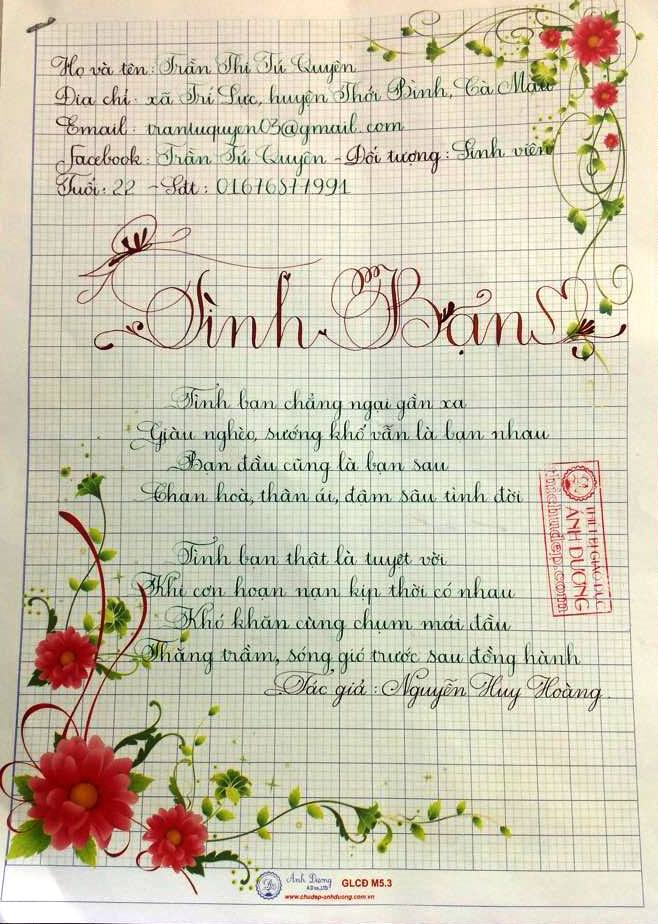 Họ và tên : Trần Thị Tú Quyên
Địa chỉ : xã Trí Lực, huyện Thới Bình, Cà Mau
Email : trantuquyen03@gmail.com
Facebook : Trần Tú Quyên - Đối tượng : Sinh viên
Tuổi : 22 - Sđt : 01676877991
Tình Bạn
Tình bạn chẳng ngại gần xa
Giàu nghèo, sướng khổ vẫn là bạn nhau
Bạn đầu cũng là bạn sau
Chan hoà, thân ái, đậm sâu tình đời
Tình bạn thật là tuyệt vời
Khi cơn hoạn nạn kịp thời có nhau
Khó khăn cùng chụm mái đầu
Thăng trầm, sóng gió trước sau đồng hành
Tác giả : Nguyễn Huy Hoàng.
THIẾT BỊ GIÁO DỤC
ÁNH DƯƠNG
Ánh Dương
GLCĐ M5.3
www.chudep-anhduong.com.vn